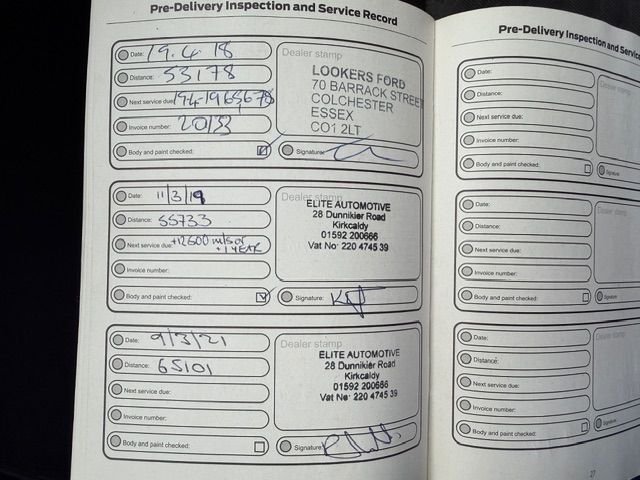 Pre-Delivery Inspection and Service Record
Date: 19.4.18
Distance: 53178
Next service due: 19-4-19 65678
Invoice number:
Body and paint checked:
Dealer stamp
LOOKERS FORD
70 BARRACK STREET
COLCHESTER
ESSEX
CO1 2LT
Signature:
Date: 11/3/19
Distance: 55733
Next service due: +12500 mls or
+1 YEAR
Invoice number:
Body and paint checked:
Dealer stamp
ELITE AUTOMOTIVE
28 Dunnikier Road
Kirkcaldy
01592 200666
Vat No: 220 4745 39
Signature:
Date: 9/3/21
Distance: 65101
Next service due:
Invoice number:
Body and paint checked:
Dealer stamp
ELITE AUTOMOTIVE
28 Dunnikier Road
Kirkcaldy
01592 200666
Vat No: 220 4745 39
Signature:
Pre-Delivery Inspection and Service
Date:
Distance:
Next service due:
Invoice number:
Body and paint checked:
Dealer stamp
Signature
Date:
Distance:
Next service due:
Invoice number:
Body and paint checked:
Dealer stamp
Signature
Date:
Distance:
Next service due:
Invoice number:
Body and paint checked:
Dealer stamp
Signature
27